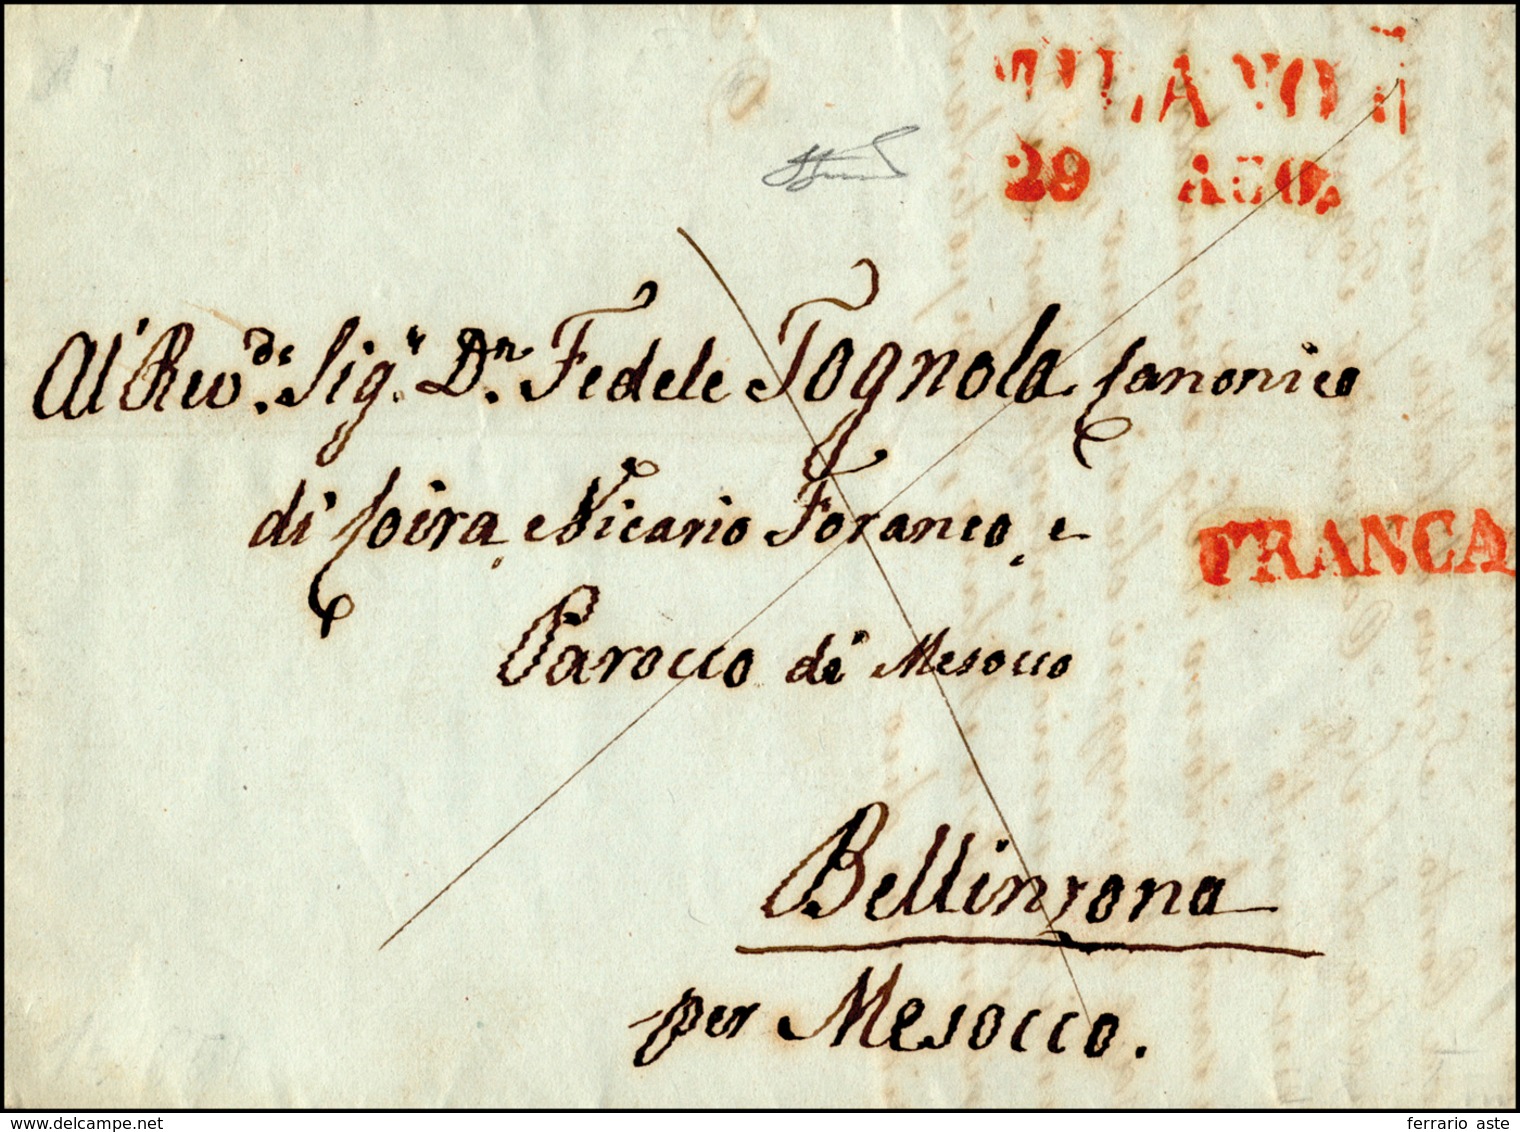 MILANO
29 AGO.
Al Rev.de Sig.r Dn. Fedele Tognola Canonico
di Coira, Vicario Foraneo, e
FRANCA
Parocco di Mesocco
Bellinzona
per Mesocco.
delcampe.net
ferrario aste